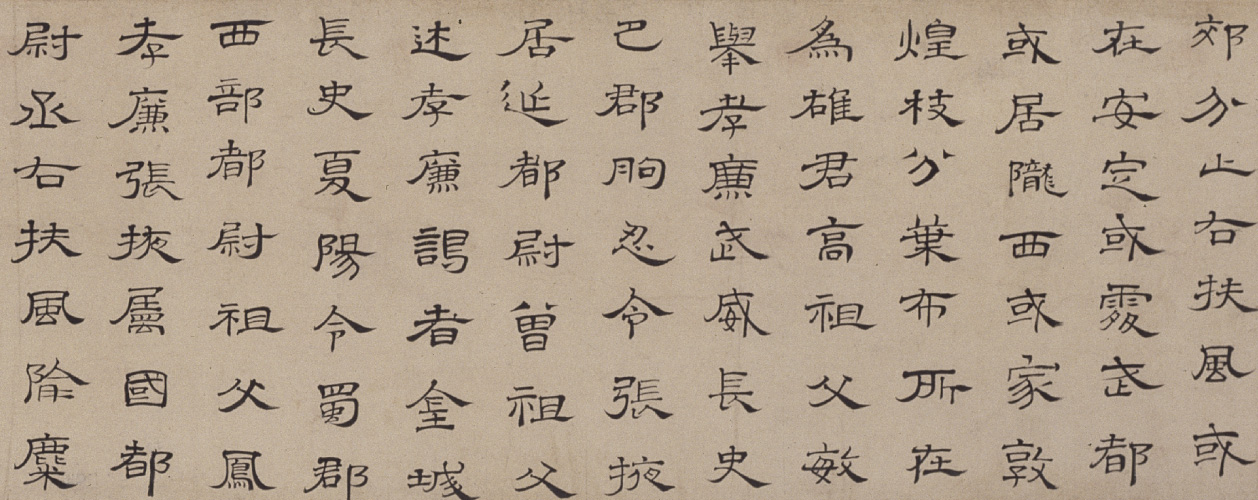 郊分止右扶風或
在安定或處武都
或居隴西或家敦
煌枝分葉布所在
為雄君高祖父敏
舉孝廉武威長史
巴郡朐忍令張掖
居延都尉曾祖父
述孝廉謁者金城
長史夏陽令蜀郡
西部都尉祖父鳳
孝廉張掖屬國都
尉丞右扶風隃麋